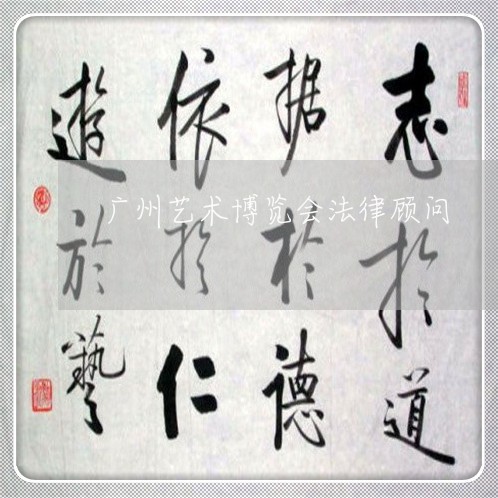 志於道
据於德
依於仁
遊於藝
广州艺术博览会法律顾问